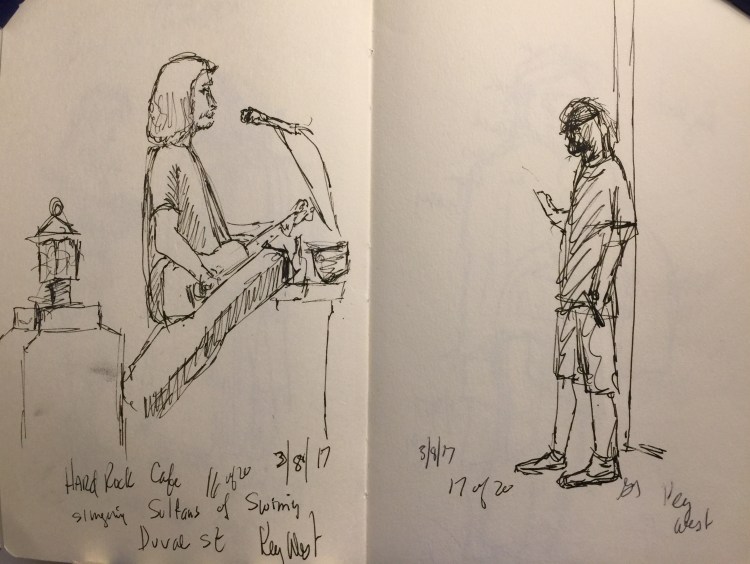 HARd Rock Cafe 16 of 20 3/8/17
singing Sultans of Swing
Duval St Key West
3/8/17
17 of 20
Key
West